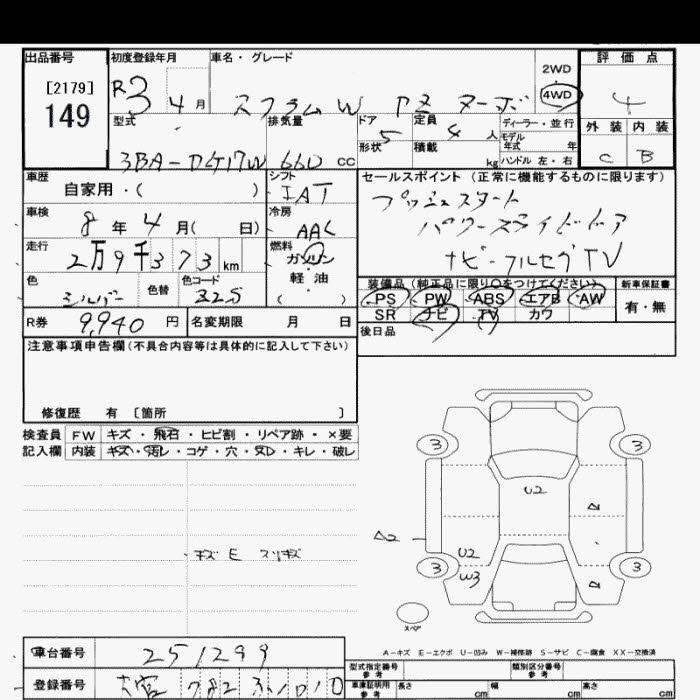 出品番号 初度登録年月 車名・グレード 評価点
[2179] R3 4月 スクラムW PZ ターボ 2WD 4WD 4
149
型式 排気量 ドア 5 定員 4人 ディーラー・並行 外装 内装
3BA-DG17W 660 CC 形状 積載 kg モデル年式 年 C B
ハンドル 左・右
車歴 自家用・( ) シフト IAT セールスポイント (正常に機能するものに限ります)
車検 8年 4月( 日) 冷房 AAC プッシュスタート
パワースライドドア
走行 2万9千373km 燃料 ガソリン 軽油 ( ) ナビ フルセグTV
色 シルバー 色替 色コード 装備品 (純正品に限り○をつけてください) 新車保証書
PS PW ABS エアB AW 有・無
SR ナビ TV カワ
R券 9,940円 名変期限 月 日
後日品
注意事項申告欄(不具合内容等は具体的に記入して下さい)
修復歴 有 [箇所 ]
検査員 FW キズ・飛石・ヒビ割・リペア跡・×要
記入欄 内装 キズ・汚レ・コゲ・穴・ヌレ・キレ・破レ
3 3
U2
A2
キズ E スリキズ U2
3 W3 3
スペア
A-キズ E-エクボ U-凹み W-補修跡 S-サビ C-腐食 XX-交換済
車台番号 251299
型式指定番号 参考 類別区分番号 参考
登録番号 大宮 782
車庫証明用 参考 長さ cm 幅 cm 高さ cm